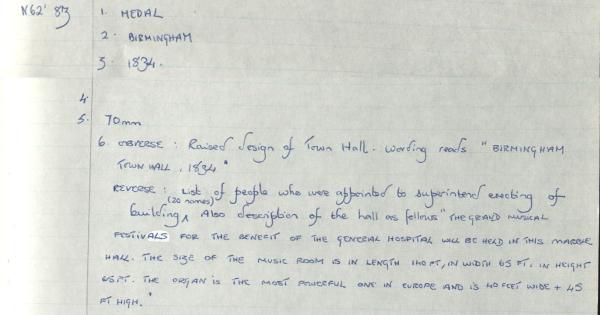 N62' 813
1. MEDAL
2. BIRMINGHAM
3. 1834.
4.
5. 70mm
6. OBVERSE : Raised design of Town Hall. Wording reads "BIRMINGHAM
TOWN HALL, 1834"
REVERSE : List of people who were appointed to superintend erecting of
(20 names)
building, Also description of the hall as follows "THE GRAND MUSICAL
FESTIVALS FOR THE BENEFIT OF THE GENERAL HOSPITAL WILL BE HELD IN THIS MARBLE
HALL. THE SIZE OF THE MUSIC ROOM IS IN LENGTH 140 FT, IN WIDTH 65 FT. IN HEIGHT
65 FT. THE ORGAN IS THE MOST POWERFUL ONE IN EUROPE AND IS 40 FEET WIDE + 45
FT HIGH."